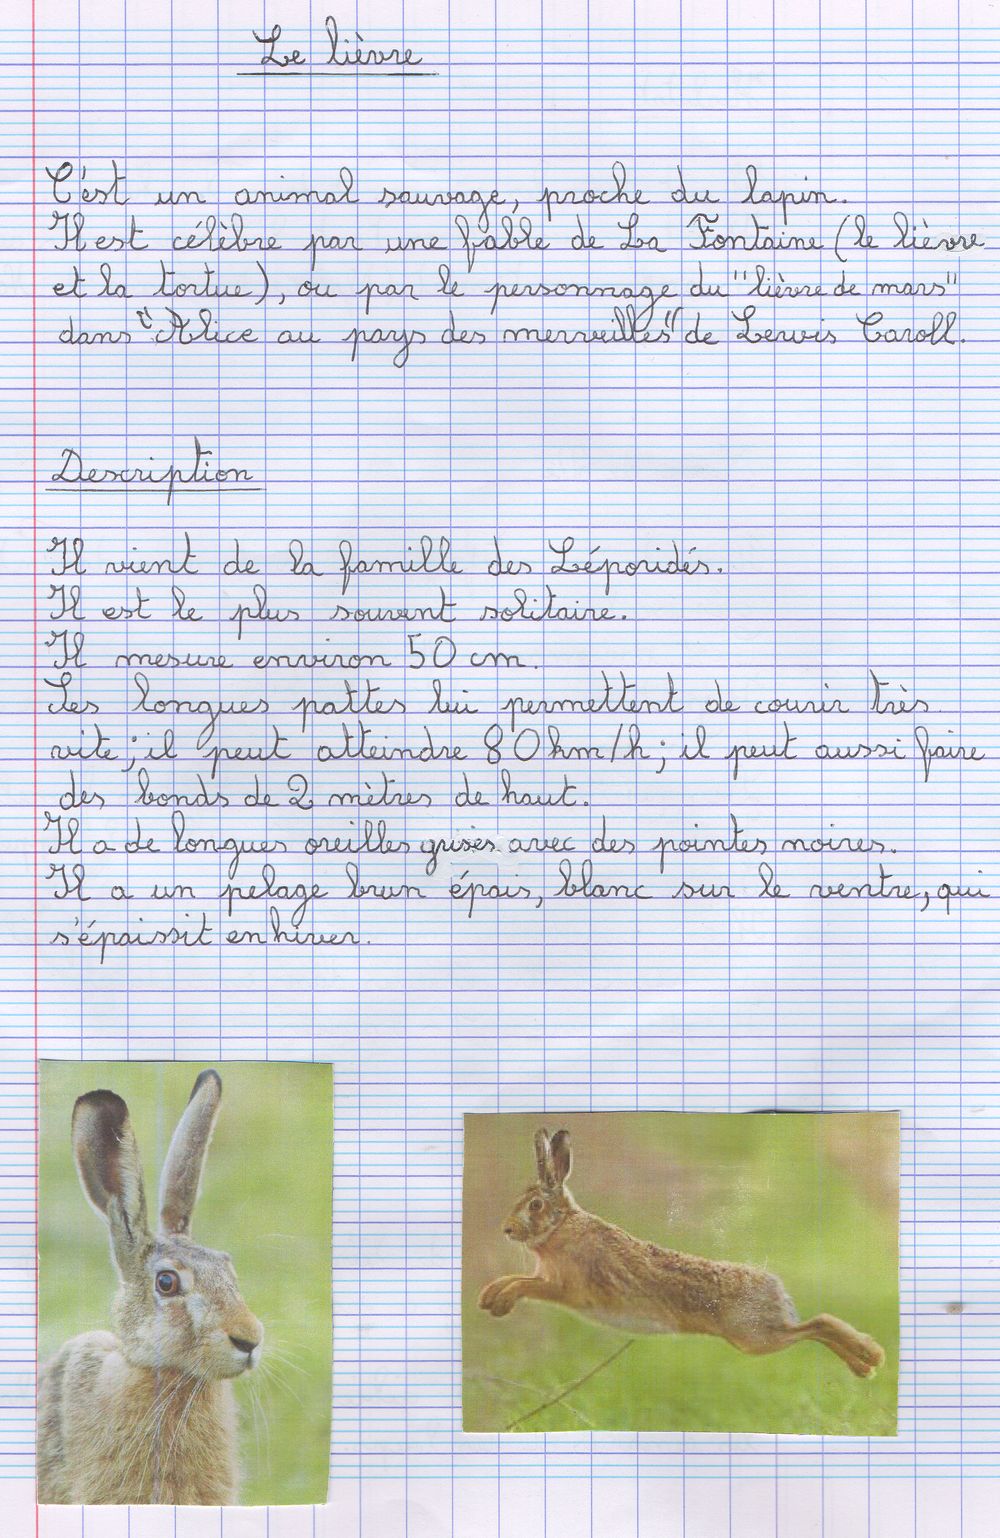 Le lièvre
C'est un animal sauvage, proche du lapin.
Il est célèbre par une fable de La Fontaine (le lièvre
et la tortue), ou par le personnage du "lièvre de mars"
dans "Alice au pays des merveilles" de Lewis Caroll.
Description
Il vient de la famille des Léporidés.
Il est le plus souvent solitaire.
Il mesure environ 50 cm.
Les longues pattes lui permettent de courir très
vite ; il peut atteindre 80 km/h ; il peut aussi faire
des bonds de 2 mètres de haut.
Il a de longues oreilles grises avec des pointes noires.
Il a un pelage brun épais, blanc sur le ventre, qui
s'épaissit en hiver.